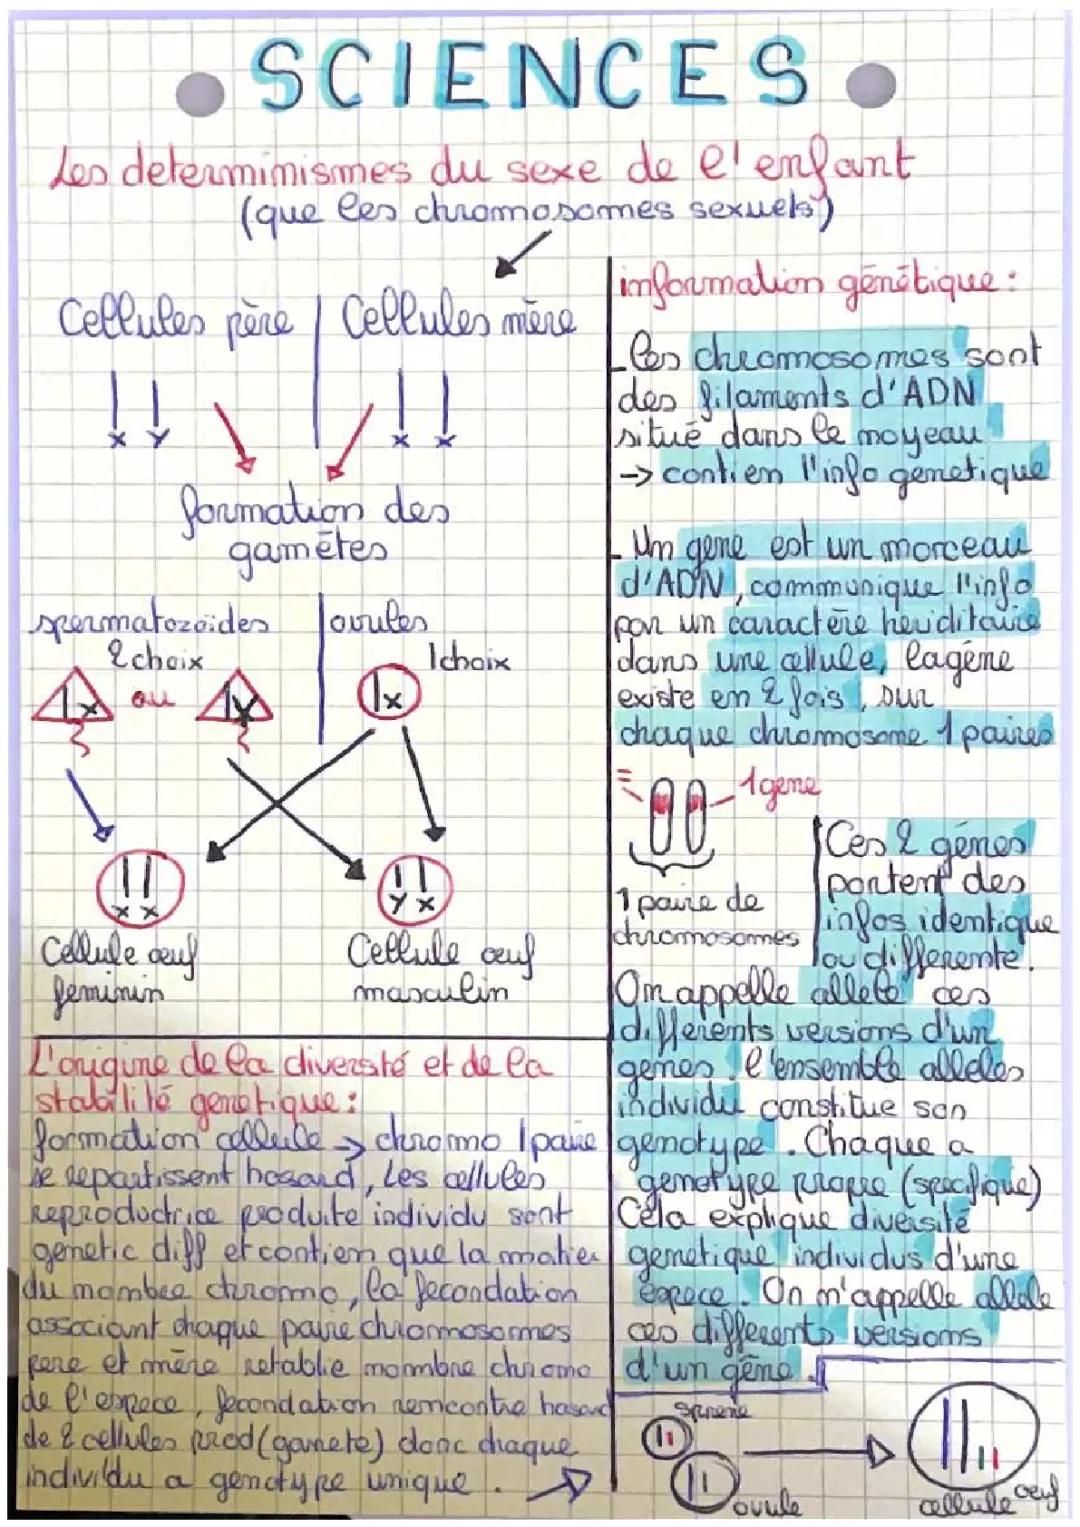 SCIENCES
Les determinismes du sexe de l'enfant
(que les chromosomes sexuels)
Cellules père | Cellules mère
x y x x
formation des
gamètes
spermatozoïdes ovules
2 choix 1 choix
x ou y x
x x y x
Cellule œuf Cellule œuf
feminin masculin
L'origine de la diversité et de la
stabilité genetique :
formation cellule → chromo 1 paire
se repartissent hasard, Les cellules
reproductrice produite individu sont
genetic diff et contien que la matier
du nombre chromo, la fecondation
associant chaque paire chromosomes
pere et mère retablie nombre chromo
de l'espece, fecondation rencontre hasard
de 2 cellules prod (gamete) donc chaque
individu a genotype unique.
information génétique :
- les chromosomes sont
des filaments d'ADN
situé dans le noyeau
→ contien l'info genetique
- Un gene est un morceau
d'ADN, communique l'info
par un caractère heriditaire
dans une cellule, lagène
existe en 2 fois, sur
chaque chromosome 1 paires
1 gene
1 paire de
chromosomes
Ces 2 génes
portent des
infos identique
ou differente.
On appelle allele ces
differents versions d'un
genes. l'ensemble alleles
individu constitue son
genotype. Chaque a
genotype propre (specifique)
Cela explique diversité
genetique individus d'une
espece. On n'appelle allele
ces differents versions
d'un gène.
ovule
cellule œuf